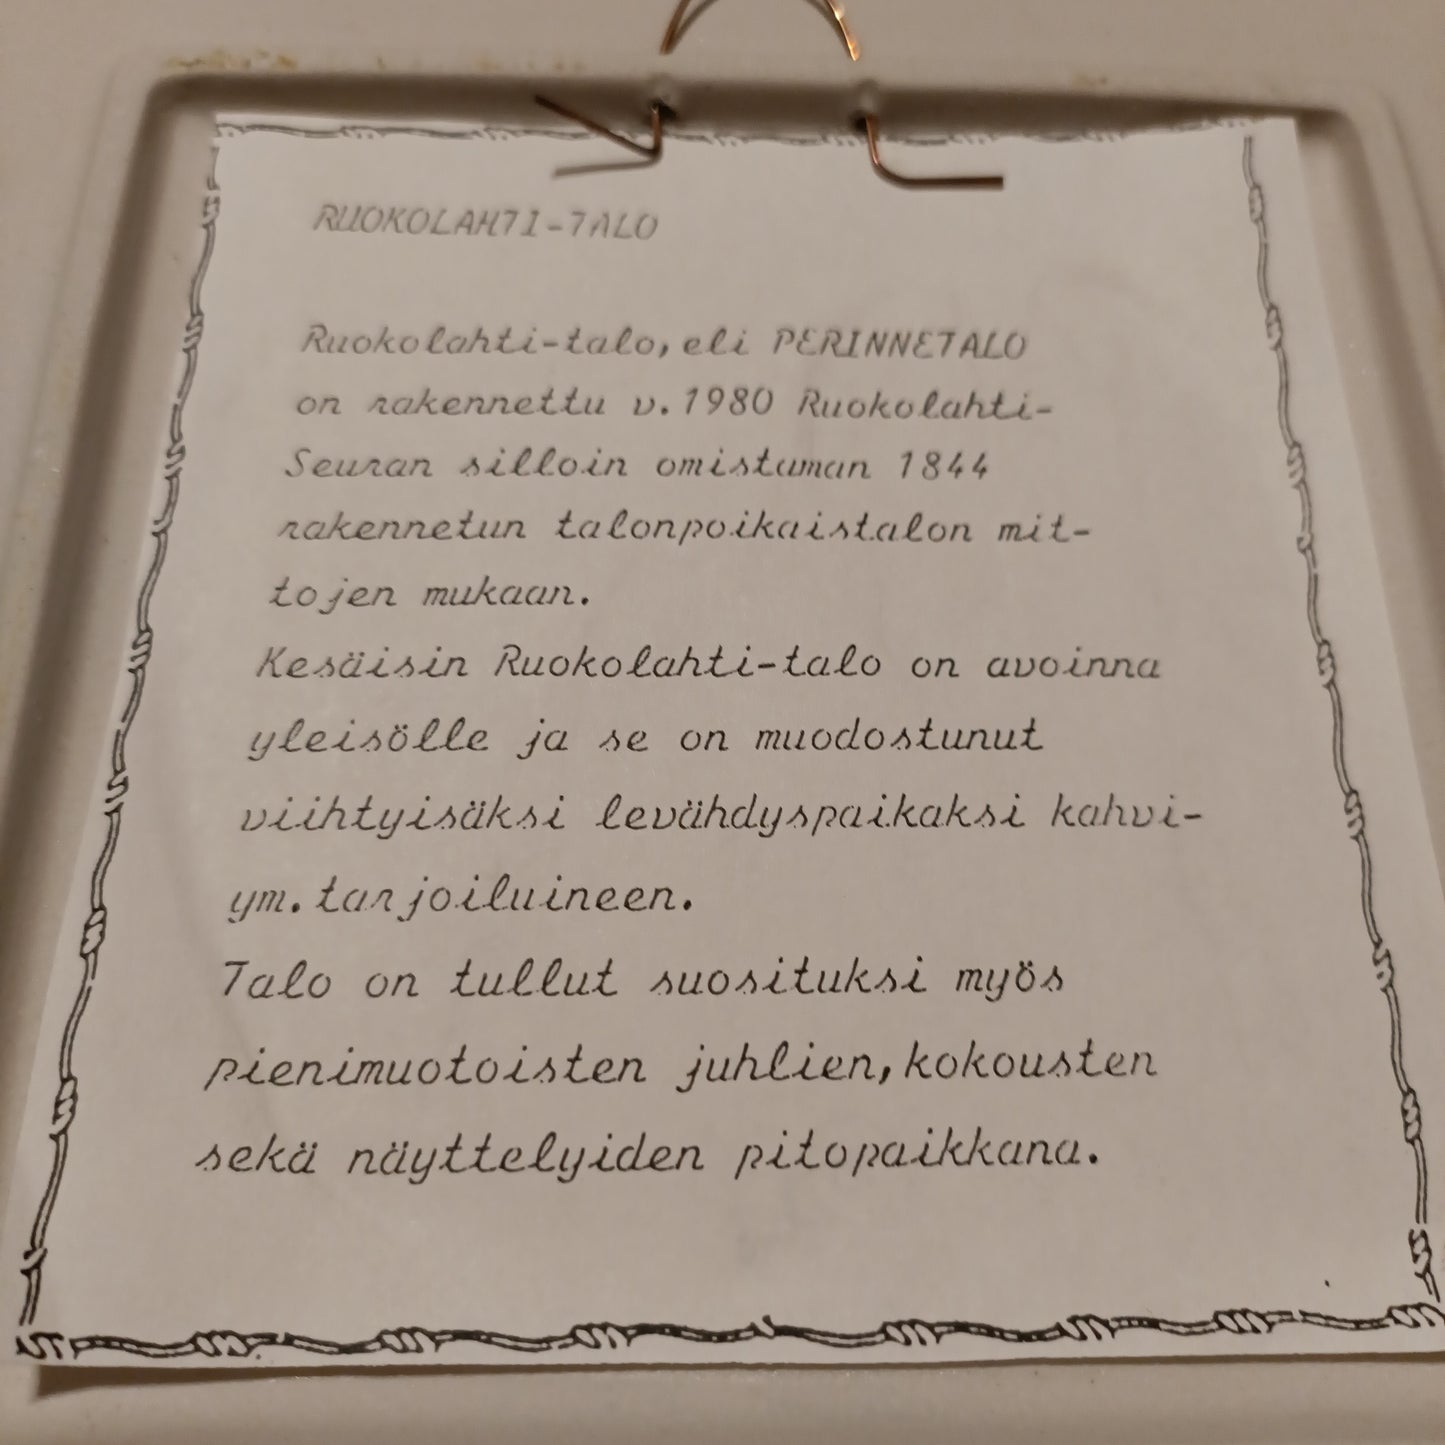 RUOKOLAHTI-TALO
Ruokolahti-talo, eli PERINNETALO
on rakennettu v. 1980 Ruokolahti-
Seuran silloin omistaman 1844
rakennetun talonpoikaistalon mit-
tojen mukaan.
Kesäisin Ruokolahti-talo on avoinna
yleisölle ja se on muodostunut
viihtyisäksi levähdyspaikaksi kahvi-
ym. tarjoiluineen.
Talo on tullut suosituksi myös
pienimuotoisten juhlien, kokousten
sekä näyttelyiden pitopaikkana.